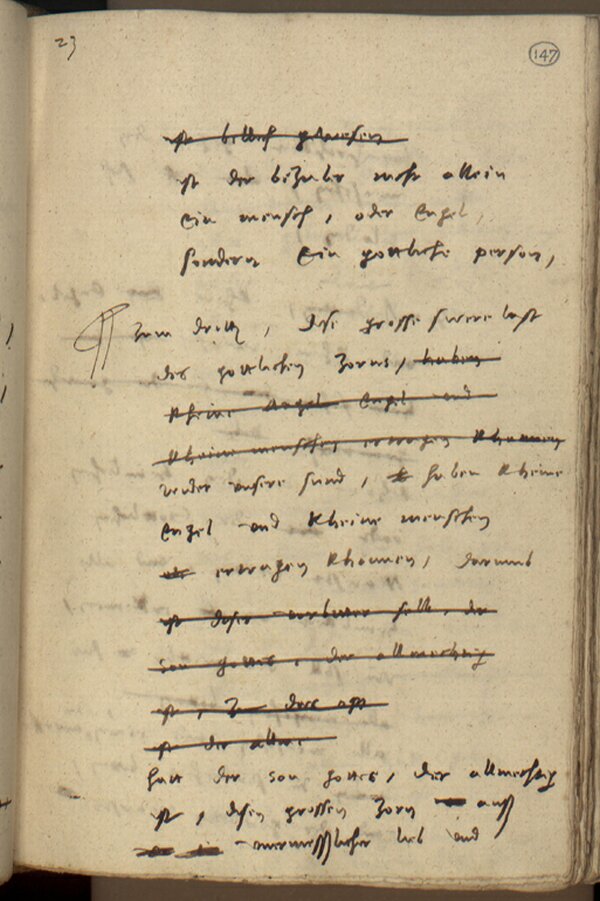 23
147
ist billich gewesen
ist der bezaler nicht allein
ein mensch, oder Engel,
sondern ein gottliche person,
zum dritten, dise grosse swere last
des gottlichen zorns, haben
kheine Engel und
kheine menschen ertragen khonnen
wider unsere sund, haben kheine
Engel und kheine menschen
ertragen khonnen, darumb
ist diser mitler selb, der
son gottes, der allmechtig
ist, zu
ist der
hatt der son gottes, der allmechtig
ist, disen grossen zorn auss
unermesslicher lieb und